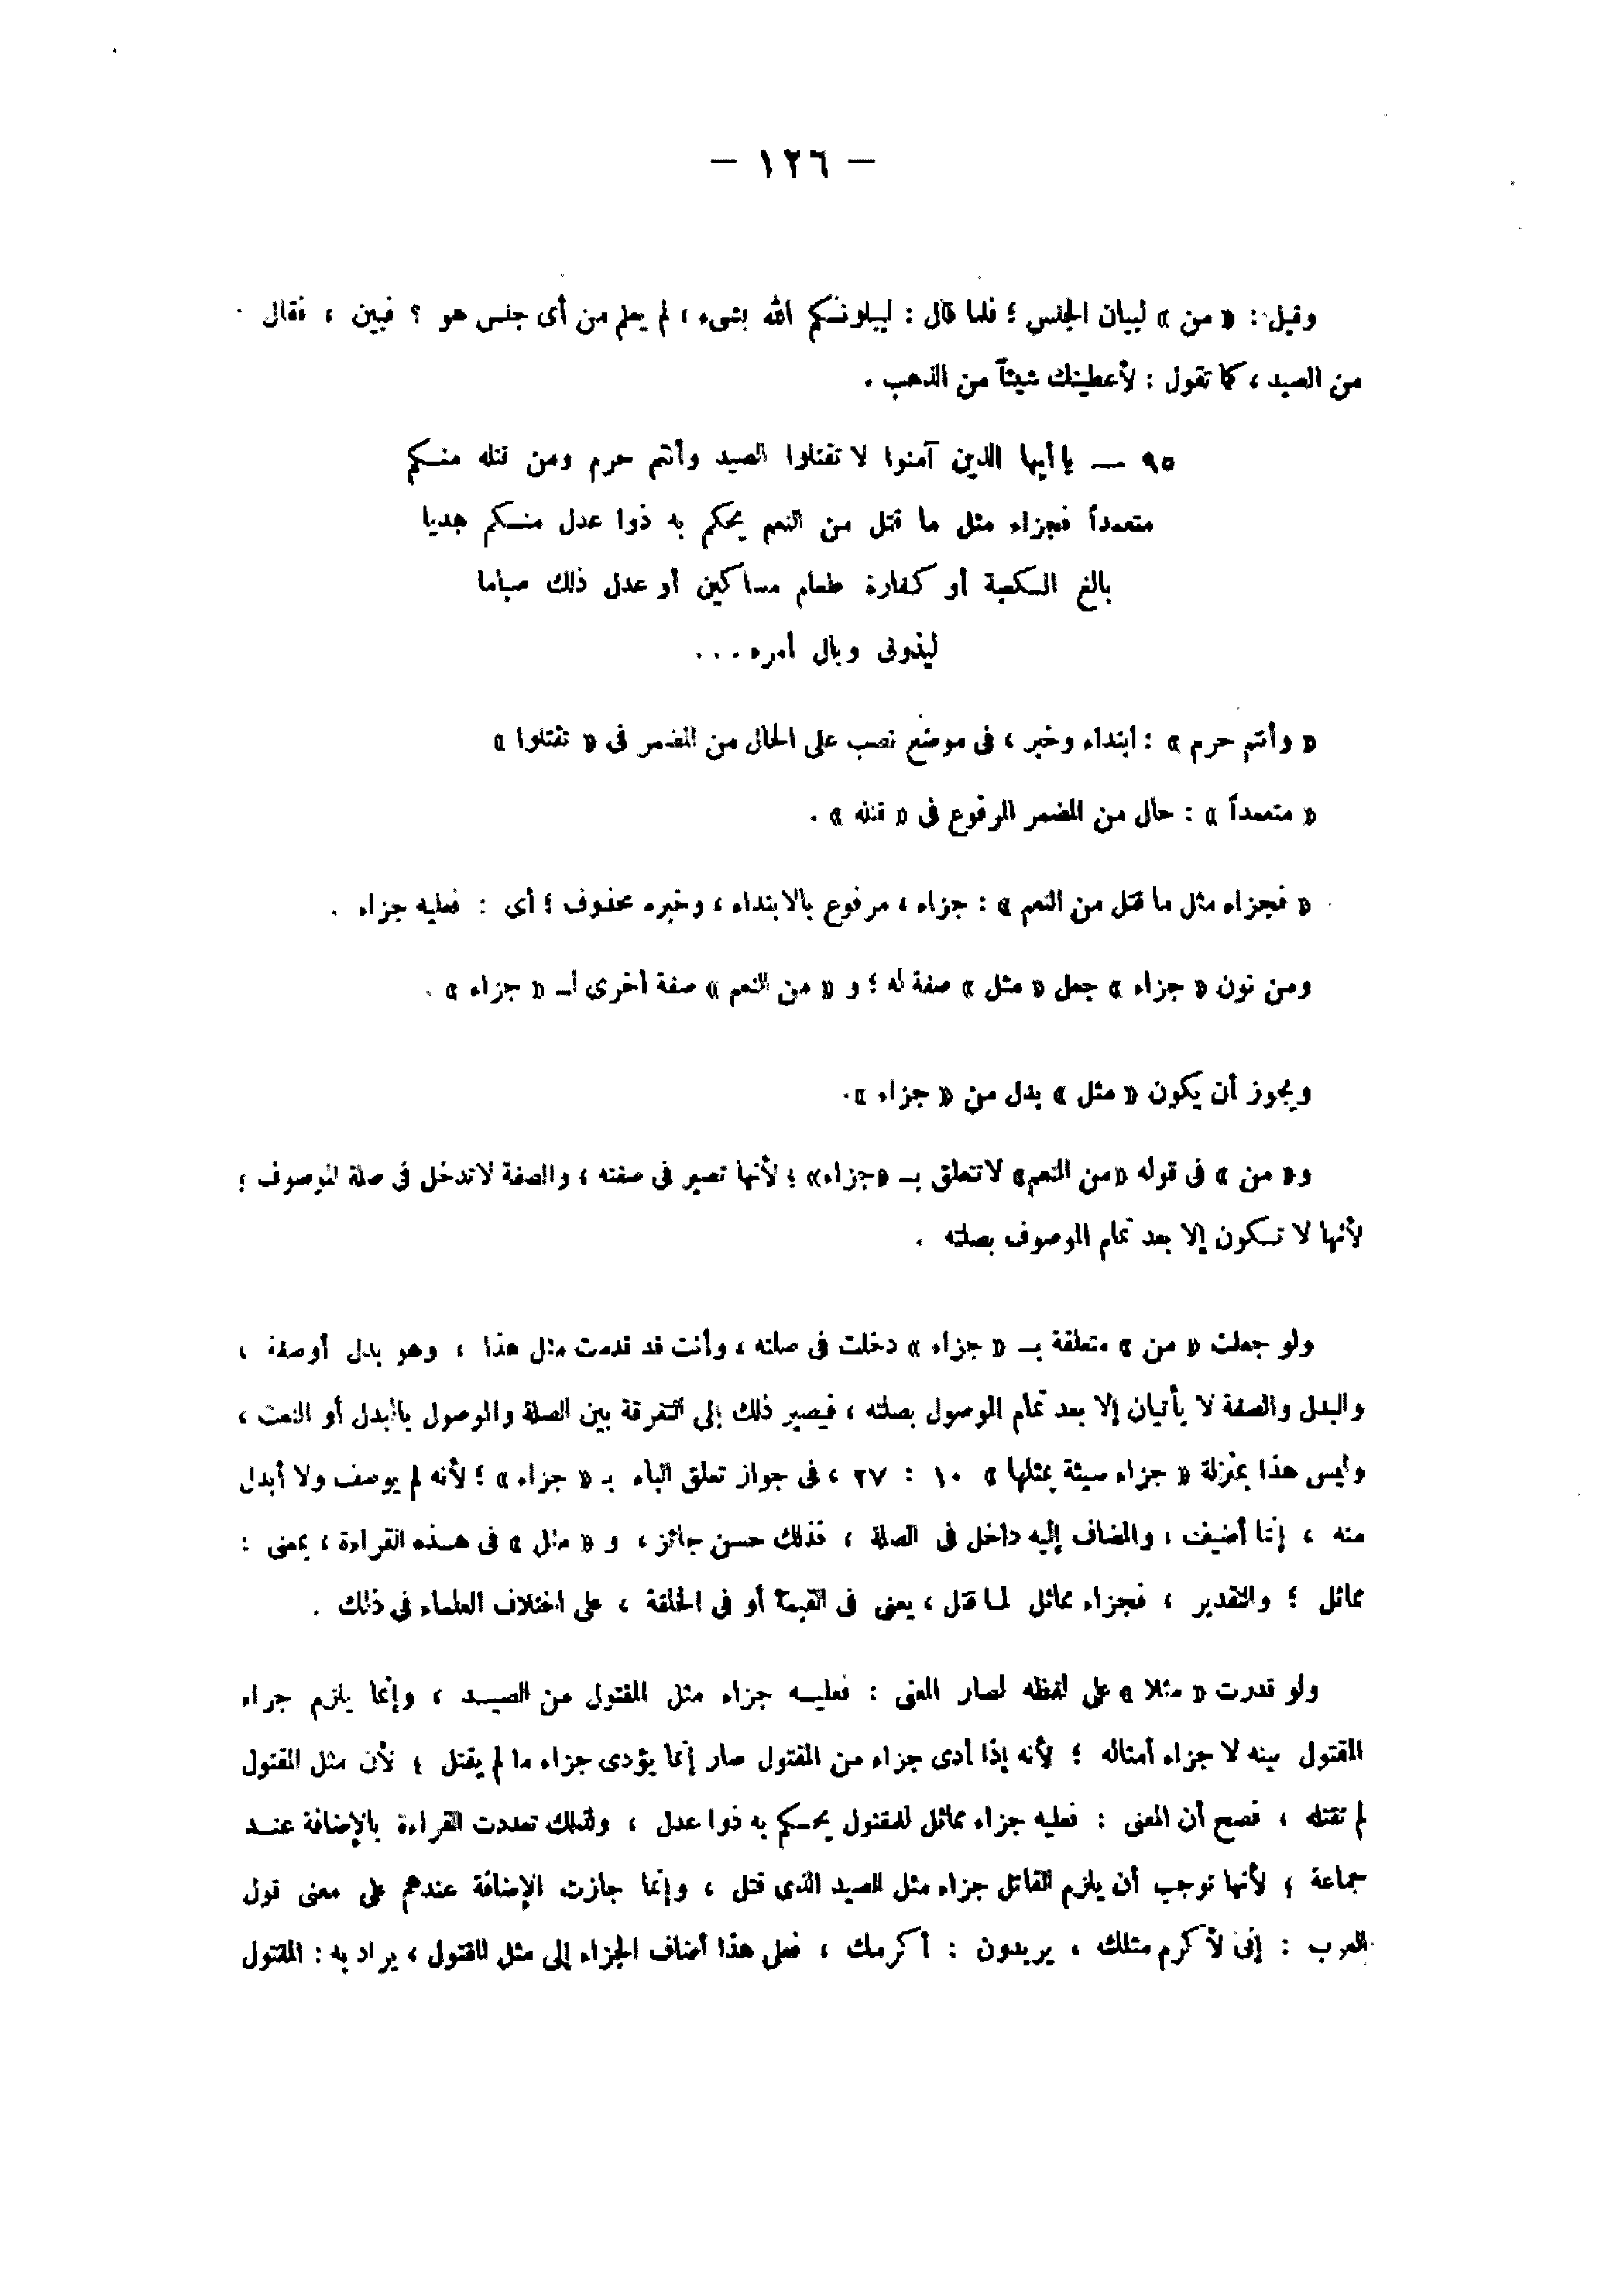 — ١٢٦ —
وقيل : « من » لبيان الجنس ؛ فلما قال : ليبلونكم الله بشىء ، لم يعلم من أى جنس هو ؟ فبين ، فقال
من الصيد ، كما تقول : لأعطينك شيئاً من الذهب .
٩٥ — يا أيها الذين آمنوا لا تقتلوا الصيد وأنتم حرم ومن قتله منكم
متعمداً فجزاء مثل ما قتل من النعم يحكم به ذوا عدل منكم هديا
بالغ الكعبة أو كفارة طعام مساكين أو عدل ذلك صياما
ليذوق وبال أمره ...
« وأنتم حرم » : ابتداء وخبر ، فى موضع نصب على الحال من المضمر فى « تقتلوا »
« متعمداً » : حال من المضمر المرفوع فى « قتله » .
« فجزاء مثل ما قتل من النعم » : جزاء ، مرفوع بالابتداء ، وخبره محذوف ؛ أى : فعليه جزاء .
ومن نون « جزاء » جعل « مثل » صفة له ؛ و « من النعم » صفة أخرى لـ « جزاء » .
ويجوز أن يكون « مثل » بدل من « جزاء ».
و« من » فى قوله «من النعم» لاتعلق بـ «جزاء» ؛ لأنها تصير فى صفته ، والصفة لاتدخل فى صلة الموصوف ؛
لأنها لا تكون إلا بعد تمام الموصوف بصلته .
ولو جعلت « من » متعلقة بـ « جزاء » دخلت فى صلته ، وأنت قد قدمت مثل هذا ، وهو بدل أوصفة ،
والبدل والصفة لا يأتيان إلا بعد تمام الموصول بصلته ، فيصير ذلك إلى التفرقة بين الصلة والموصول بالبدل أو النعت ،
وليس هذا بمنزلة « جزاء سيئة بمثلها » ١٠ : ٢٧ ، فى جواز تعلق الباء بـ « جزاء » ؛ لأنه لم يوصف ولا أبدل
منه ، إنما أضيف ، والمضاف إليه داخل فى الصلة ، فذلك حسن جائز ، و « مثل » فى هذه القراءة ، بمعنى :
مماثل ؛ والتقدير ، فجزاء مماثل لما قتل ، يعنى فى القيمة أو فى الخلقة ، على اختلاف العلماء فى ذلك .
ولو قدرت « مثلا » على لفظه لصار المعنى : فعليه جزاء مثل المقتول من الصيد ، وإنما يلزم جزاء
المقتول بعينه لا جزاء أمثاله ؛ لأنه إذا أدى جزاء من المقتول صار إنما يؤدى جزاء ما لم يقتل ؛ لأن مثل المقتول
لم تقتله ، فصح أن المعنى : فعليه جزاء مماثل للمقتول يحكم به ذوا عدل ، ولذلك تعددت القراءة بالإضافة عند
جماعة ؛ لأنها توجب أن يلزم القاتل جزاء مثل الصيد الذى قتل ، وإنما جازت الإضافة عندهم على معنى قول
العرب : إنى لأكرم مثلك ، يريدون : أكرمك ، فعلى هذا أضاف الجزاء إلى مثل المقتول ، يراد به : المقتول